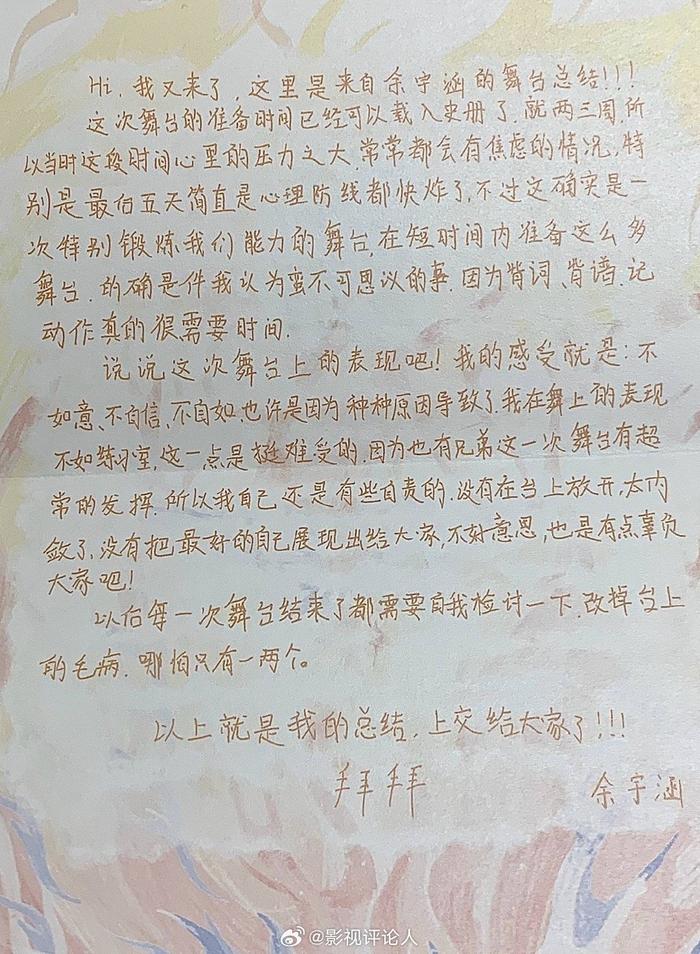 Hi,我又来了,这里是来自余宇涵的舞台总结!!!
这次舞台的准备时间已经可以载入史册了,就两三周,所
以当时这段时间心里的压力之大,常常都会有焦虑的情况,特
别是最后五天简直是心理防线都快炸了,不过这确实是一
次特别锻炼我们能力的舞台,在短时间内准备这么多
舞台,的确是件我认为蛮不可思议的事,因为背词、背谱、记
动作真的很需要时间.
说说这次舞台上的表现吧!我的感受就是:不
如意、不自信、不自如,也许是因为种种原因导致了,我在舞上的表现
不如练习室,这一点是挺难受的,因为也有兄弟这一次舞台有超
常的发挥,所以我自己还是有些自责的,没有在台上放开,太内
敛了,没有把最好的自己展现出给大家,不好意思,也是有点辜负
大家吧!
以后每一次舞台结来了都需要自我检讨一下,改掉台上
的毛病,哪怕只有一两个。
以上就是我的总结,上交给大家了!!!
拜拜
余宇涵
@影视评论人